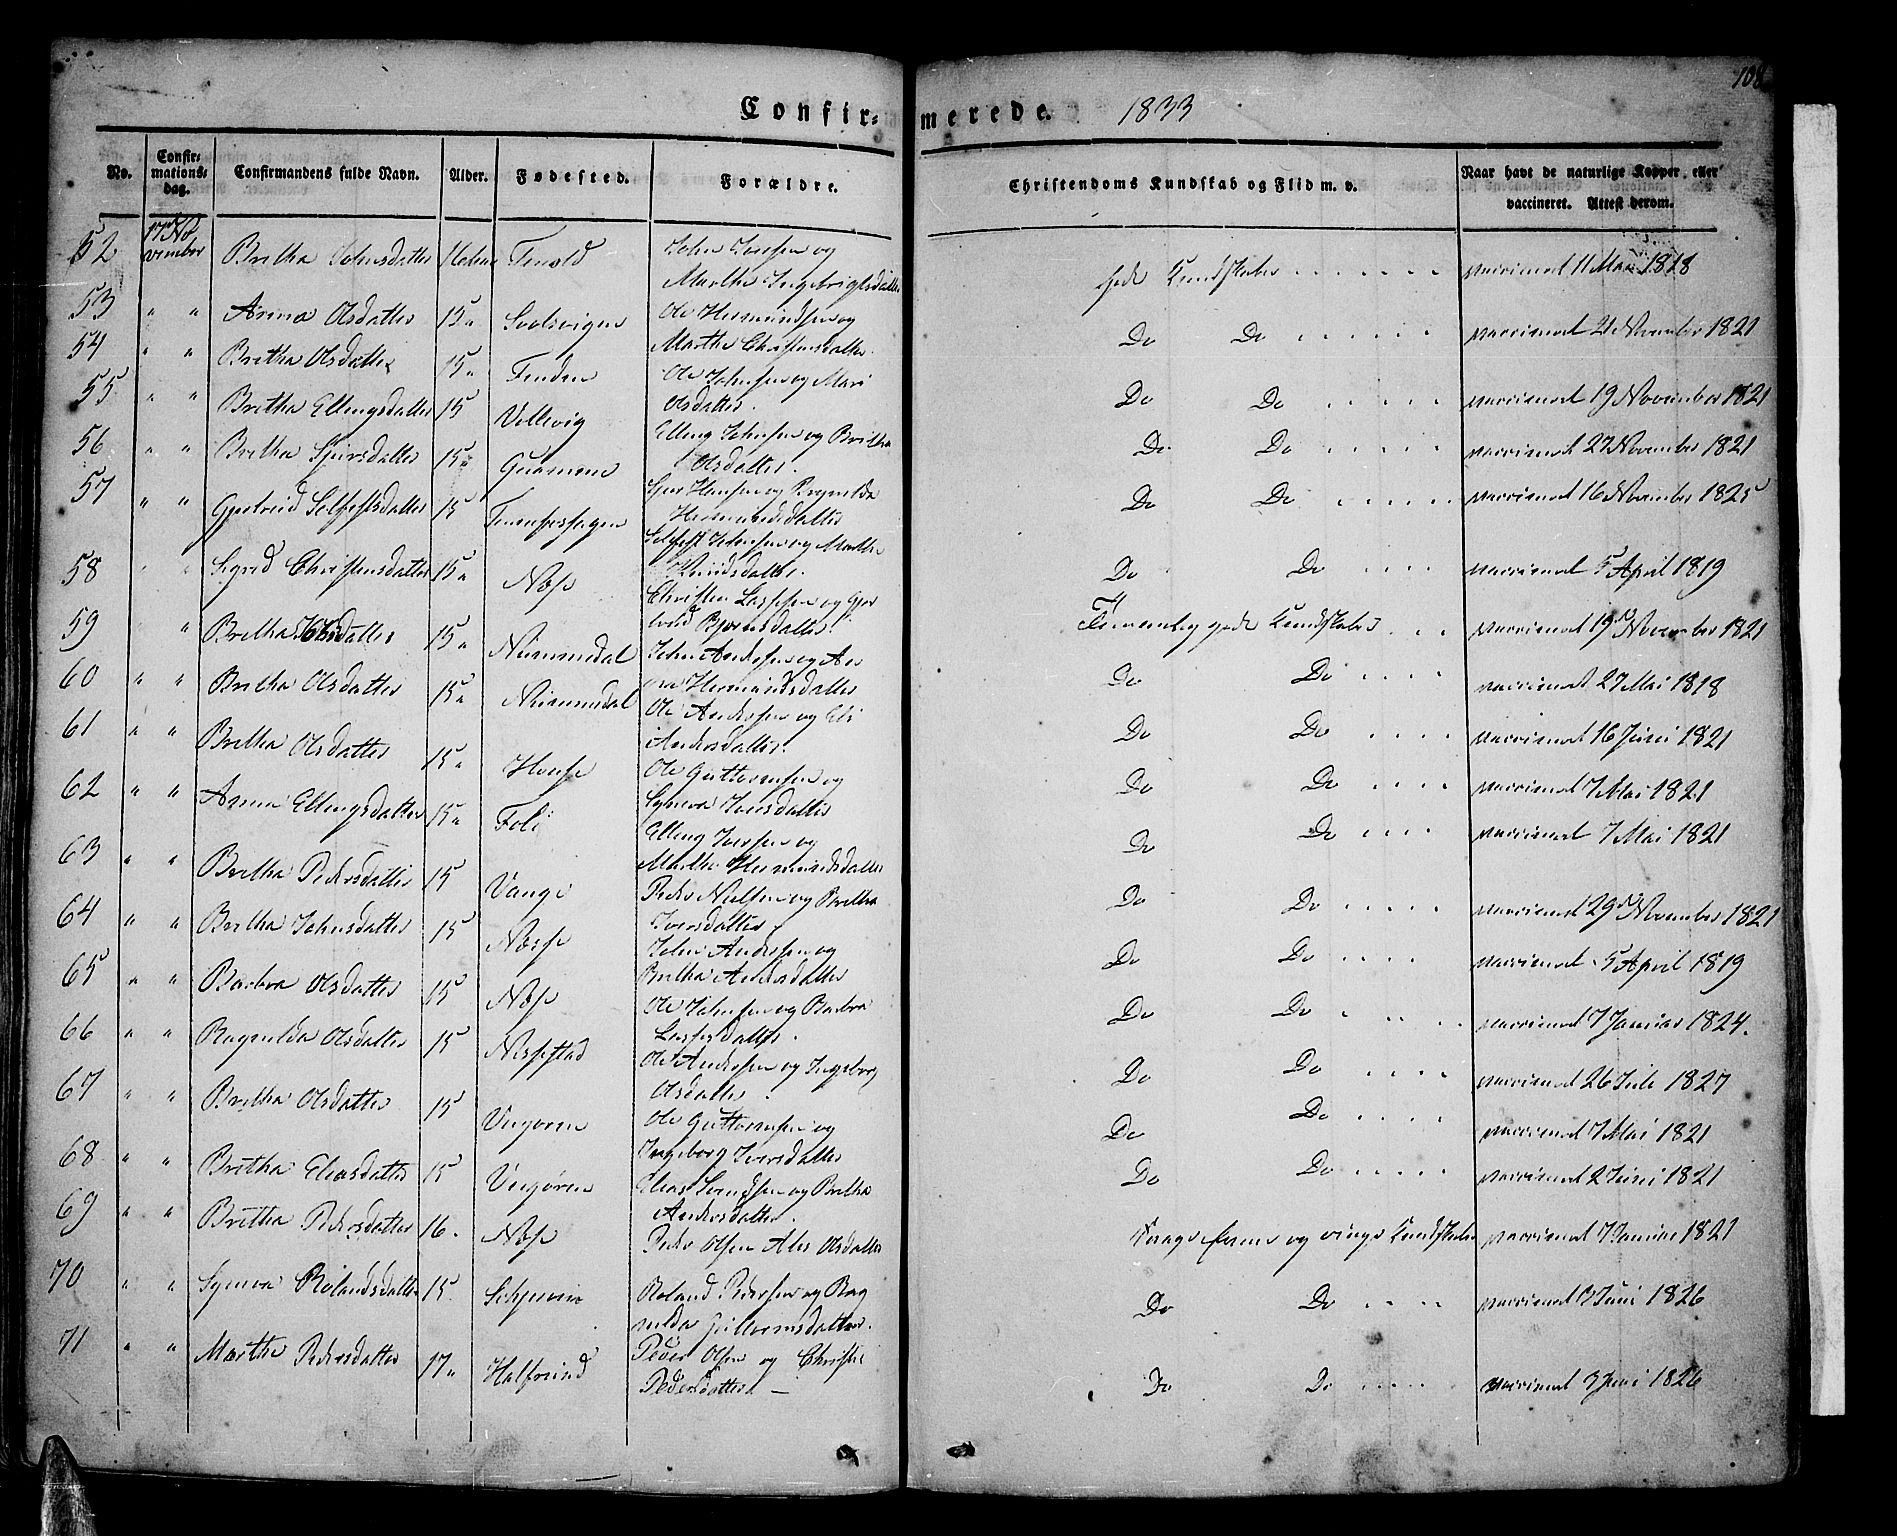 108
Confir-merede. 1833
No.
Confir-
mations-
dag.
Confirmandens fulde Navn.
Alder.
Fødested.
Forældre.
Christendoms Kundskab og Flid m. v.
Naar havt de naturlige Kopper, eller
vaccineret. Attest derom.
52 17 No-
vember Britha Johnsdatter 16 Tenold John Iversen og
Marthe Ingebrigtsdatter gode Kundskaber vaccineret 11 Mai 1818
53 " " Anna Olsdatter 15 " Ole Hermundsen og
Marthe Christensdatter Do Do vaccineret 21 November 1821
54 " " Britha Olsdatter 15 " Ole Johnsen og Mari
Olsdatter. Do Do vaccineret 19 November 1821
55 " " Britha Ellingsdatter 15 Vollevig Elling Johnsen og Britha
Olsdatter. Do Do vaccineret 27 November 1821
56 " " Britha Sjursdatter 15 " Sjur Hansen og Ragnilda
Hermundsdatter Do Do vaccineret 16 November 1825
57 " " Gjertrud Selfestsdatter 15 Selfest Johnsen og Marthe
Knudsdatter. Do Do vaccineret 5 April 1819
58 " " Sigrid Christensdatter 15 " Næse Christen Lassesen og Gjer
trud Bjørnsdatter. Temmelig gode Kundskaber vaccineret 19 November 1821
59 " Britha Johnsdatter 15 " Nummedal John Andersen og An
na Hermundsdatter Do Do vaccineret 27 Mai 1818
60 " " Britha Olsdatter 15 " Nummedal Ole Andersen og Eli
Andersdatter. Do Do vaccineret 16 Juni 1821
61 " " Britha Olsdatter 15 " Ole Guttormsen og
Synneva Iversdatter Do Do vaccineret 7 Mai 1821
62 " " Anna Ellingsdatter 15 " Foli Elling Iversen og
Marthe Hermundsdatter Do Do vaccineret 7 Mai 1821
63 " " Britha Pedersdatter 15 Vange Peder Nielsen og Britha
Iversdatter Do Do vaccineret 29 November 1821
64 " " Britha Johnsdatter 15 Næse John Andersen og
Britha Andersdatter Do Do vaccineret 5 April 1819
65 " " Barbra Olsdatter 15 Næse Ole Johnsen og Barbra
Lassesdatter. Do Do vaccineret 7 Januar 1824.
66 " " Ragnilda Olsdatter 15 Nessestad Ole Andersen og Ingeborg
Olsdatter. Do Do vaccineret 26 Juli 1827
67 " " Britha Olsdatter 15 Ole Guttormsen og
Ingeborg Iversdatter Do Do vaccineret 7 Mai 1821
68 " " Britha Eliasdatter 15 Elias Svendsen og Britha
Andersdatter. Do Do vaccineret 2 Juni 1821
69 " " Britha Pedersdatter 16. Næse Peder Olsen Olsdatter Kundskaber vaccineret 7 Januar 1821
70 " " Synneva Rolandsdatter 15. Roland Pedersen og Rag
nilda Guttormsdatter. Do Do vaccineret Juni 1826
71 " " Marthe Pedersdatter 17 " Peder Olsen og Christi
Pedersdatter — Do Do vaccineret 3 Juni 1826